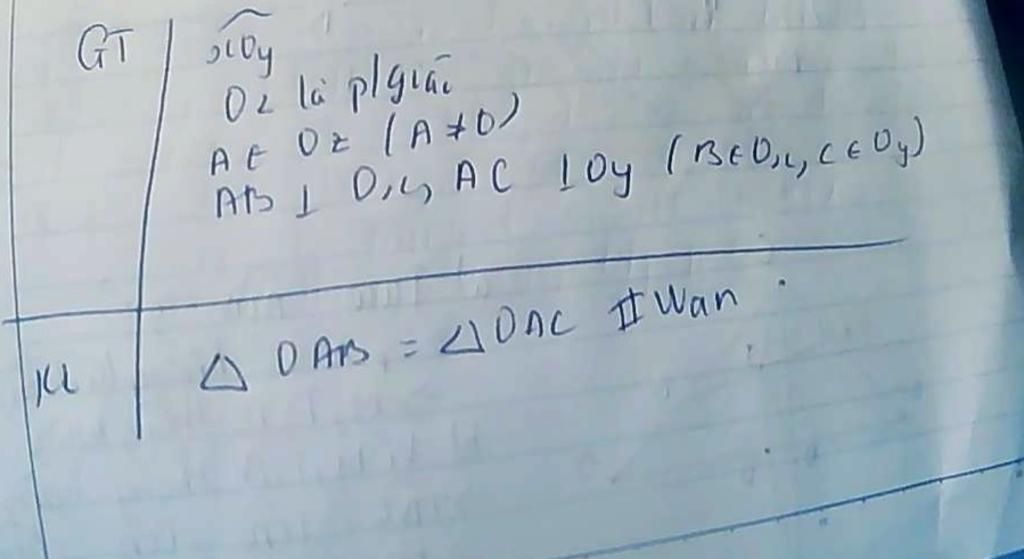 GT xOy
Oz là p/giác
A ∈ Oz (A ≠ O)
AB ⊥ Ox, AC ⊥ Oy (B ∈ Ox, C ∈ Oy)
KL △ OAB = △ OAC #Wan